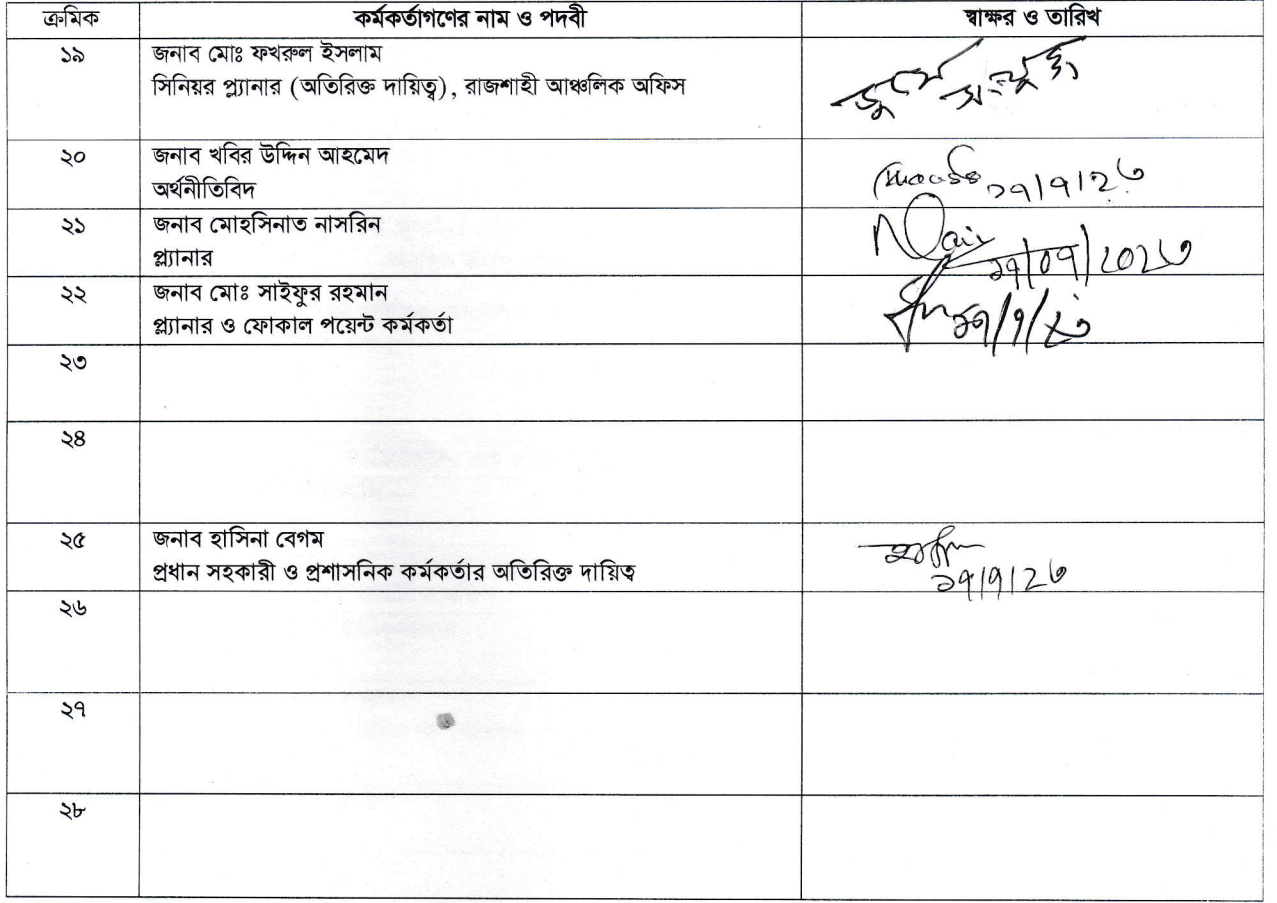 ক্রমিক কর্মকর্তাগণের নাম ও পদবী স্বাক্ষর ও তারিখ
১৯ জনাব মোঃ ফখরুল ইসলাম
সিনিয়র প্ল্যানার (অতিরিক্ত দায়িত্ব), রাজশাহী আঞ্চলিক অফিস
জুমে সংযুক্ত
২০ জনাব খবির উদ্দিন আহমেদ
অর্থনীতিবিদ
২৭/৭/২৩
২১ জনাব মোহসিনাত নাসরিন
প্ল্যানার
২৭/০৭/২০২৩
২২ জনাব মোঃ সাইফুর রহমান
প্ল্যানার ও ফোকাল পয়েন্ট কর্মকর্তা
২৭/৭/২৩
২৩
২৪
২৫ জনাব হাসিনা বেগম
প্রধান সহকারী ও প্রশাসনিক কর্মকর্তার অতিরিক্ত দায়িত্ব
২৭/৭/২৩
২৬
২৭
২৮